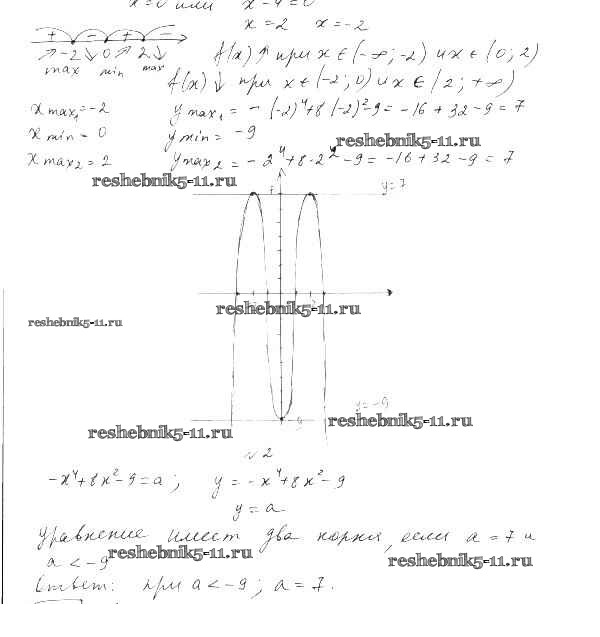 x=0 или x²-4=0
x=2 x=-2
+ - + -
-2 0 2
max min max
f(x)↑ при x∈(-∞;-2) и x∈(0;2)
f(x)↓ при x∈(-2;0) и x∈(2;+∞)
x max₁=-2 y max₁= -(-2)⁴+8(-2)²-9=-16+32-9=7
x min=0 y min= -9
reshebnik5-11.ru
x max₂=2 y max₂=-2⁴+8·2²-9=-16+32-9=7
reshebnik5-11.ru
7 y=7
reshebnik5-11.ru
reshebnik5-11.ru
y=-9
-9
reshebnik5-11.ru
reshebnik5-11.ru
№2
-x⁴+8x²-9=a; y=-x⁴+8x²-9
y=a
Уравнение имеет два корня, если a=7 и
a<-9
reshebnik5-11.ru
reshebnik5-11.ru
Ответ: при a<-9; a=7.